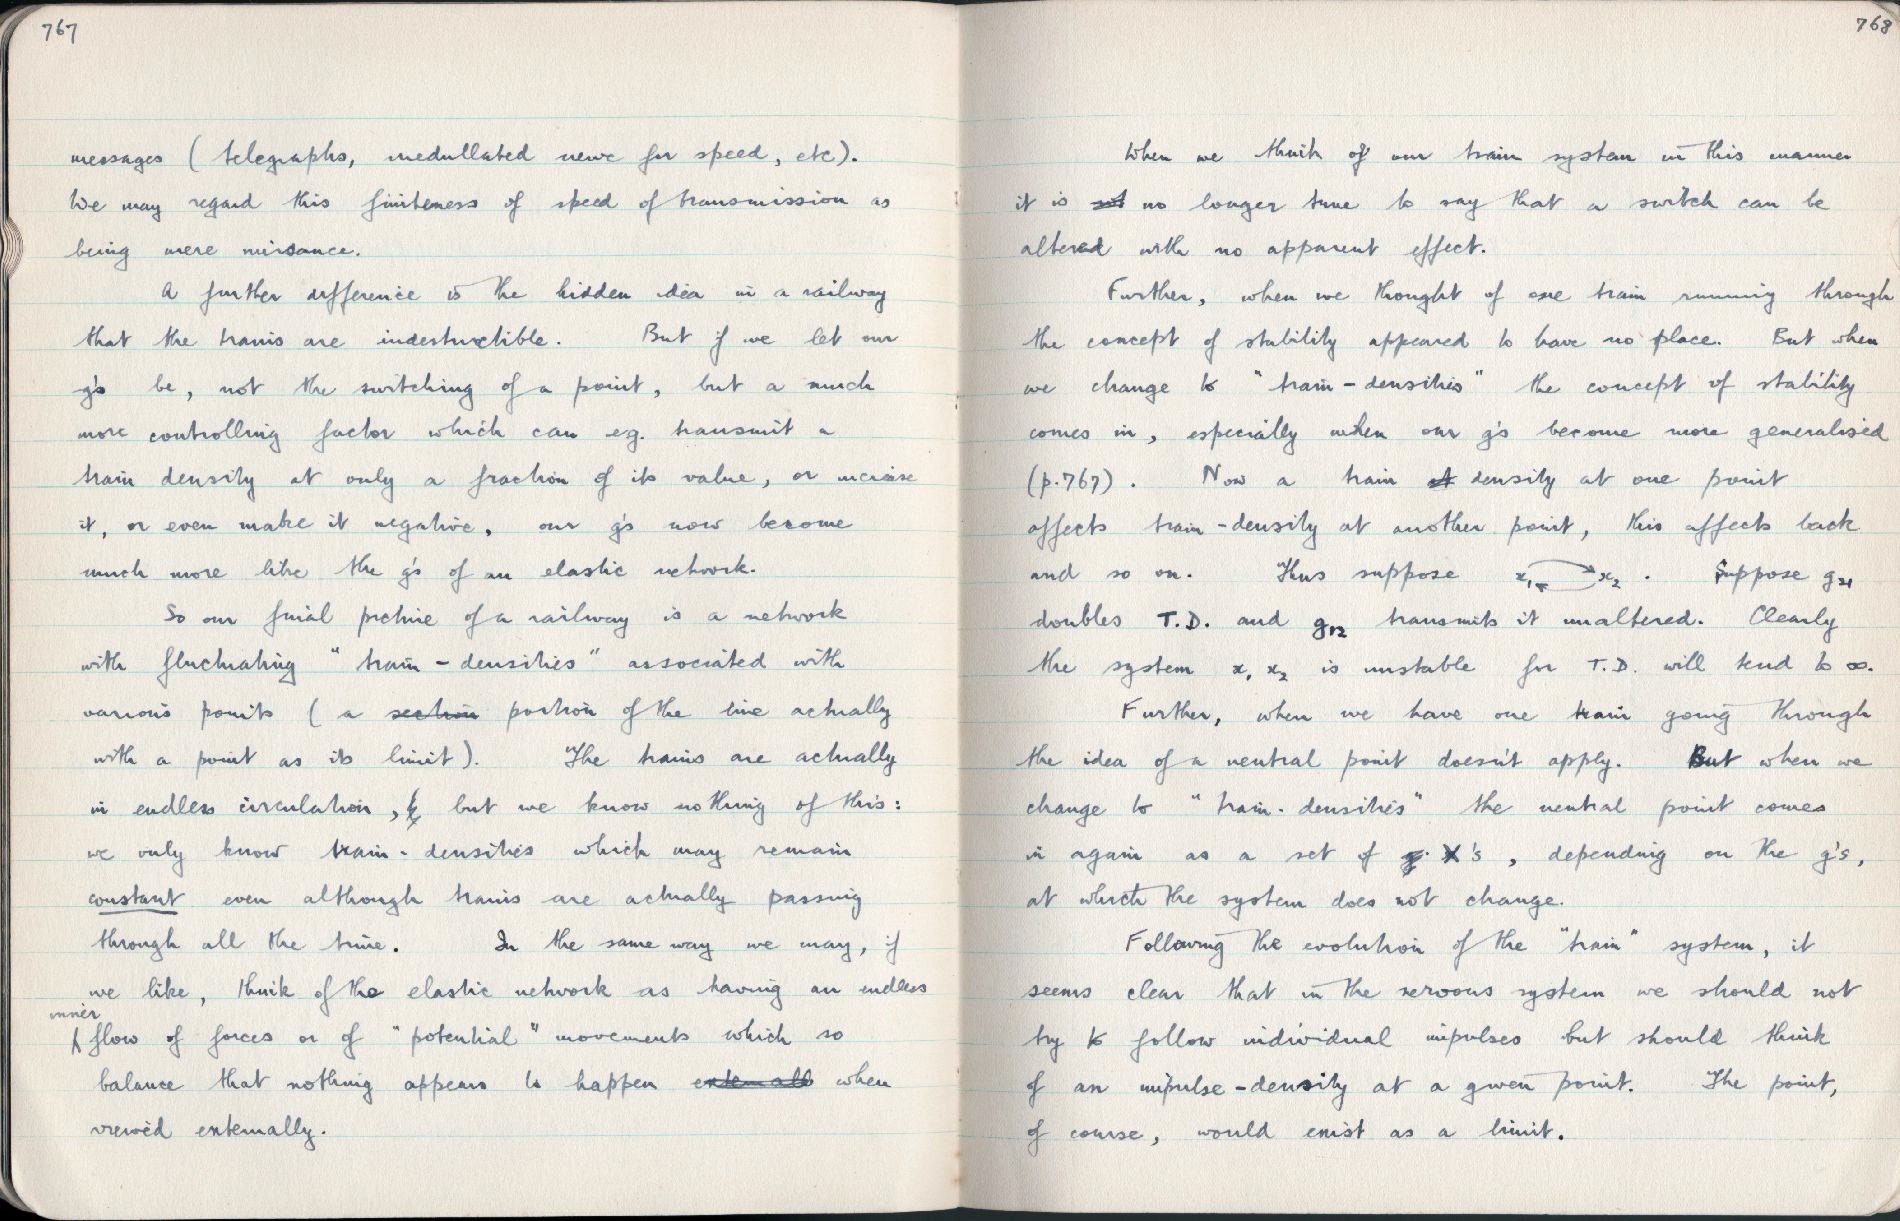 767
messages (telegraphs, medullated nerve for speed, etc).
We may regard this finiteness of speed of transmission as
being mere nuisance.
A further difference is the hidden idea in a railway
that the trains are indestructible. But if we let our
g's be, not the switching of a point, but a much
more controlling factor which can eg. transmit a
train density at only a fraction of its value, or increase
it, or even make it negative, our g's now become
much more like the g's of an elastic network.
So our final picture of a railway is a network
with fluctuating "train-densities" associated with
various points (a section portion of the line actually
with a point as its limit). The trains are actually
in endless circulation, but we know nothing of this:
we only know train-densities which may remain
constant even although trains are actually passing
through all the time. In the same way we may, if
we like, think of the elastic network as having an endless
inner
flow of forces or of "potential" movements which so
balance that nothing appears to happen externall when
viewed externally.
768
When we think of our train system in this manner
it is not no longer true to say that a switch can be
altered with no apparent effect.
Further, when we thought of one train running through
the concept of stability appeared to have no place. But when
we change to "train-densities" the concept of stability
comes in, especially when our g's become more generalised
(p.767). Now a train at density at one point
affects train-density at another point, this affects back
and so on. Thus suppose x₁ ⇄ x₂. Suppose g₂₁
doubles T.D. and g₁₂ transmits it unaltered. Clearly
the system x₁ x₂ is unstable for T.D. will tend to ∞.
Further, when we have one train going through
the idea of a neutral point doesn't apply. But when we
change to "train-densities" the neutral point comes
in again as a set of X's, depending on the g's,
at which the system does not change.
Following the evolution of the "train" system, it
seems clear that in the nervous system we should not
try to follow individual impulses but should think
of an impulse-density at a given point. The point,
of course, would exist as a limit.